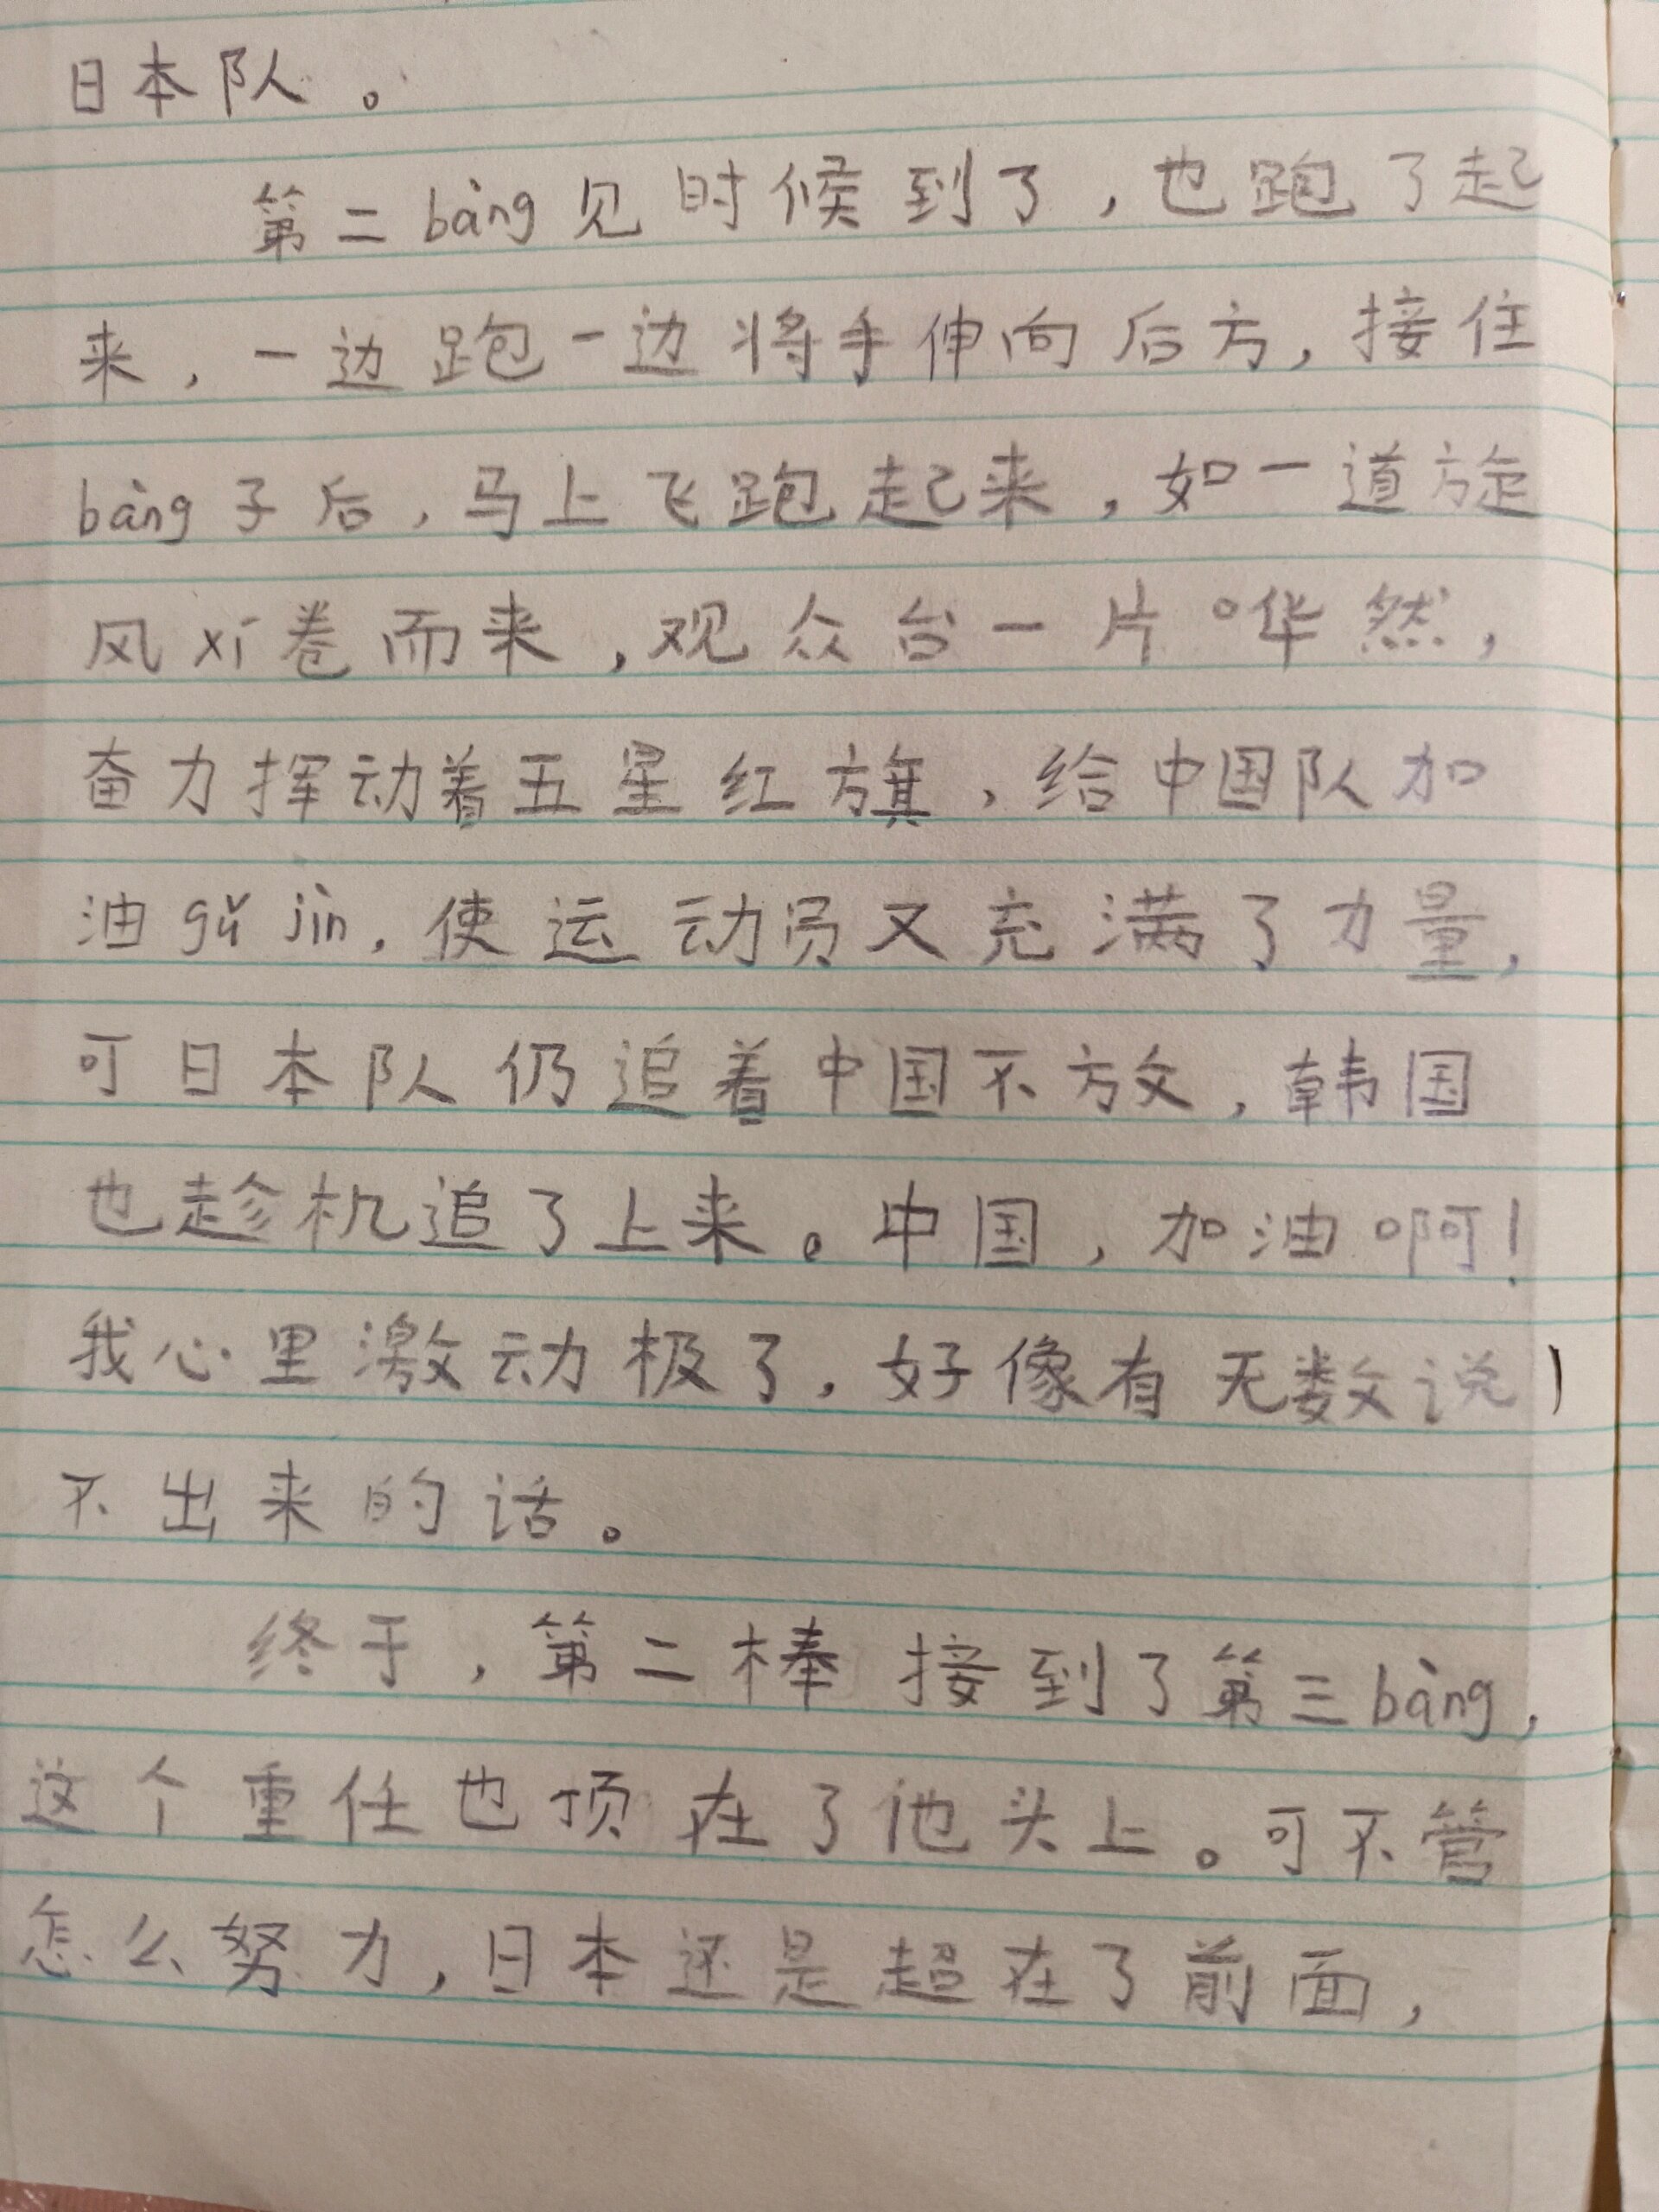 日本队。
第二bàng见时候到了，也跑了起
来，一边跑一边将手伸向后方，接住
bàng子后，马上飞跑起来，如一道旋
风xí卷而来，观众台一片哗然，
奋力挥动着五星红旗，给中国队加
油gǔ jìn，使运动员又充满了力量，
可日本队仍追着中国不放，韩国
也趁机追了上来。中国，加油啊！
我心里激动极了，好像有无数说
不出来的话。
终于，第二棒接到了第三bàng，
这个重任也顶在了他头上。可不管
怎么努力，日本还是超在了前面，